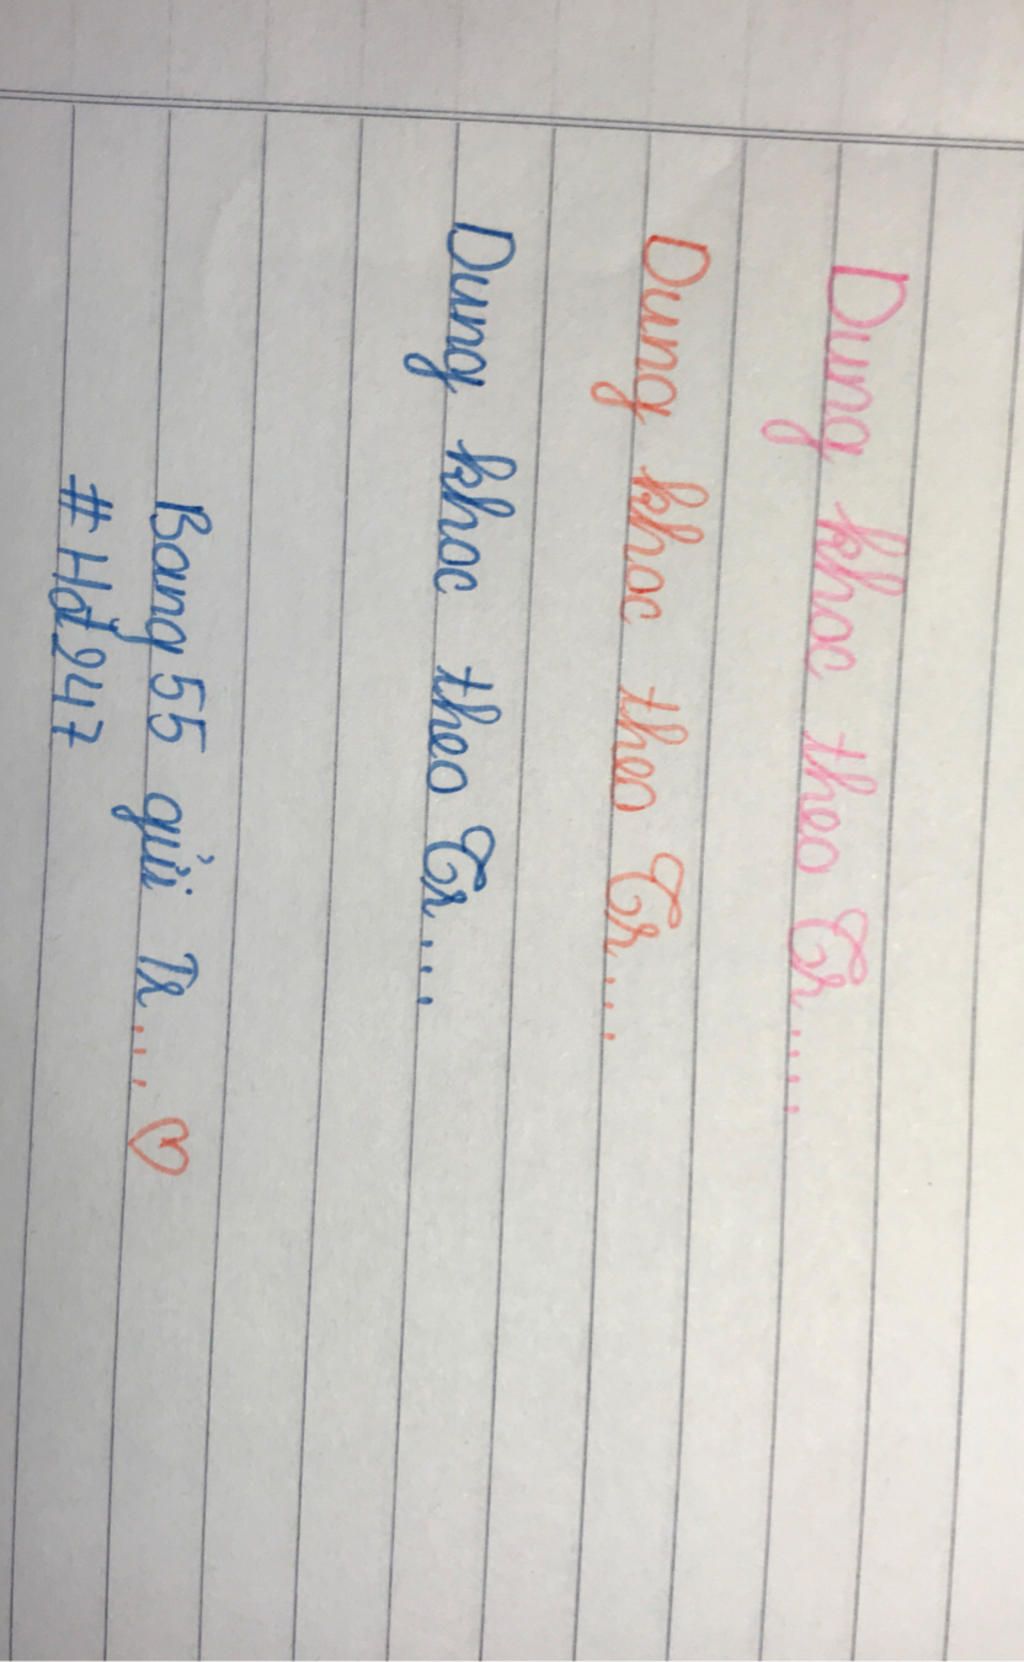 Dung khoc theo Tr.....
Dung khoc theo Tr....
Dung khoc theo Tr....
Bang 55 gửi Tr.... ♡
#Hđ247